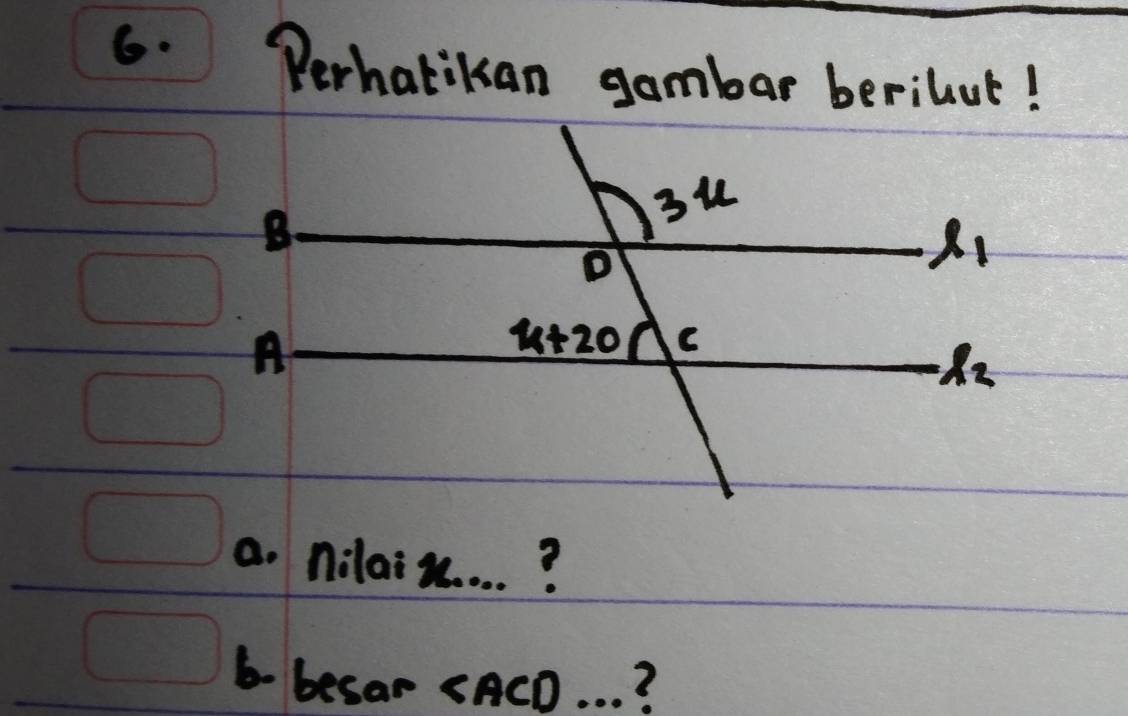 6. Perhatikan gambar berikut !
3x
B l1
D
x+20 C
A l2
a. Nilai x.... ?
b. besar <ACD ...?